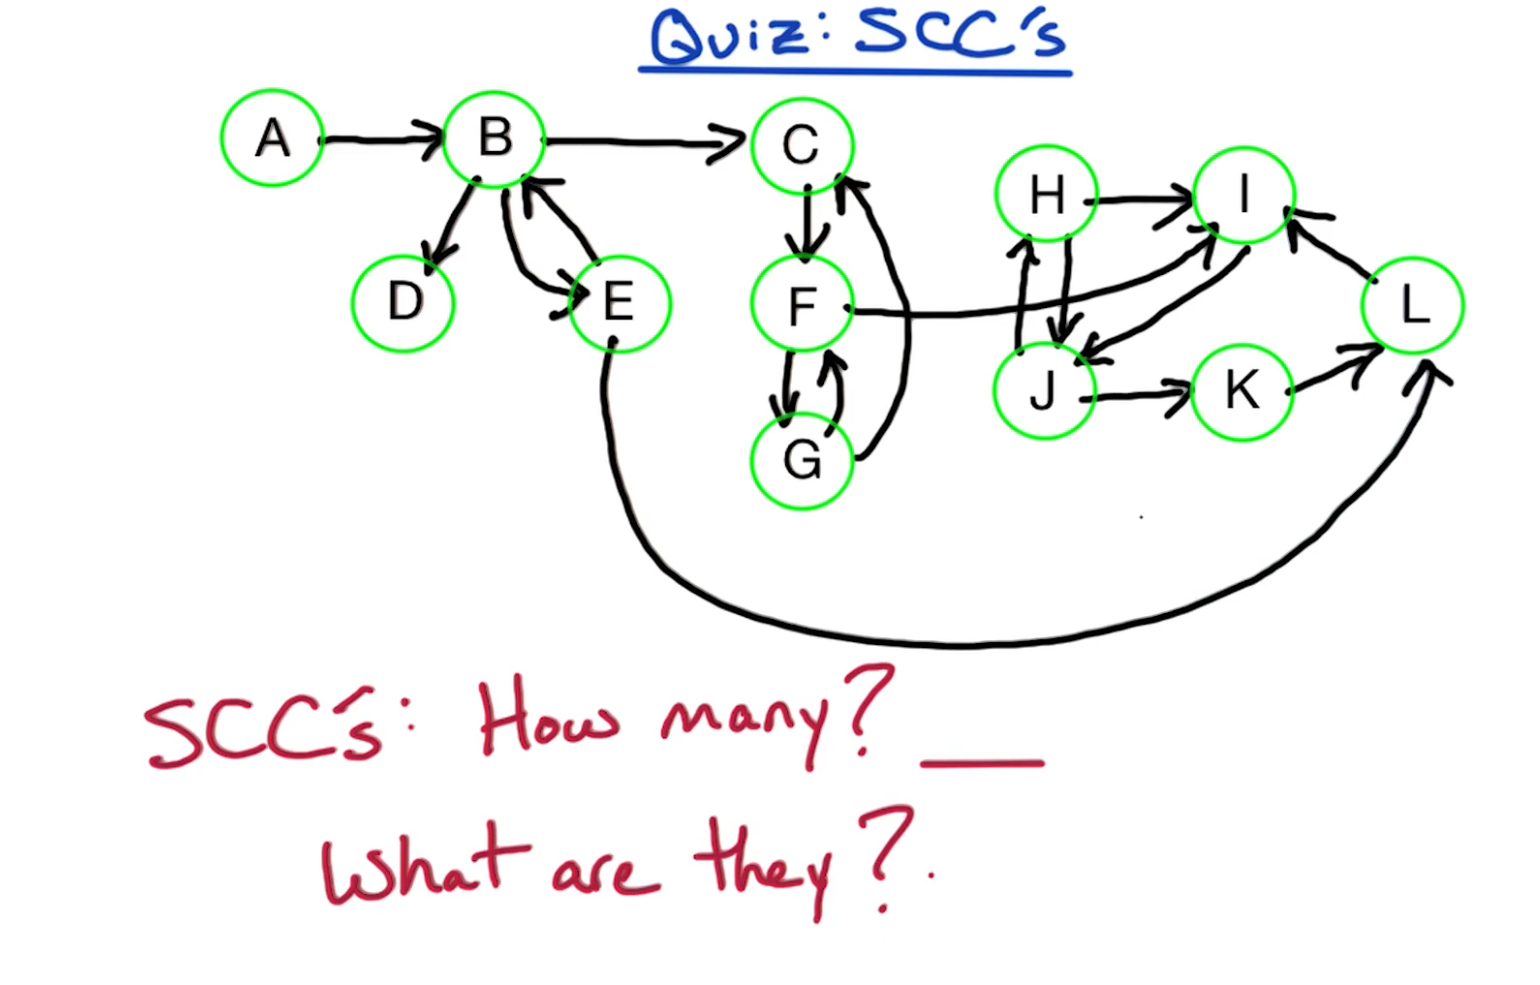 Quiz: SCC's
A B C
H I
D E F L
J K
G
SCC's: How many? ____
What are they?.